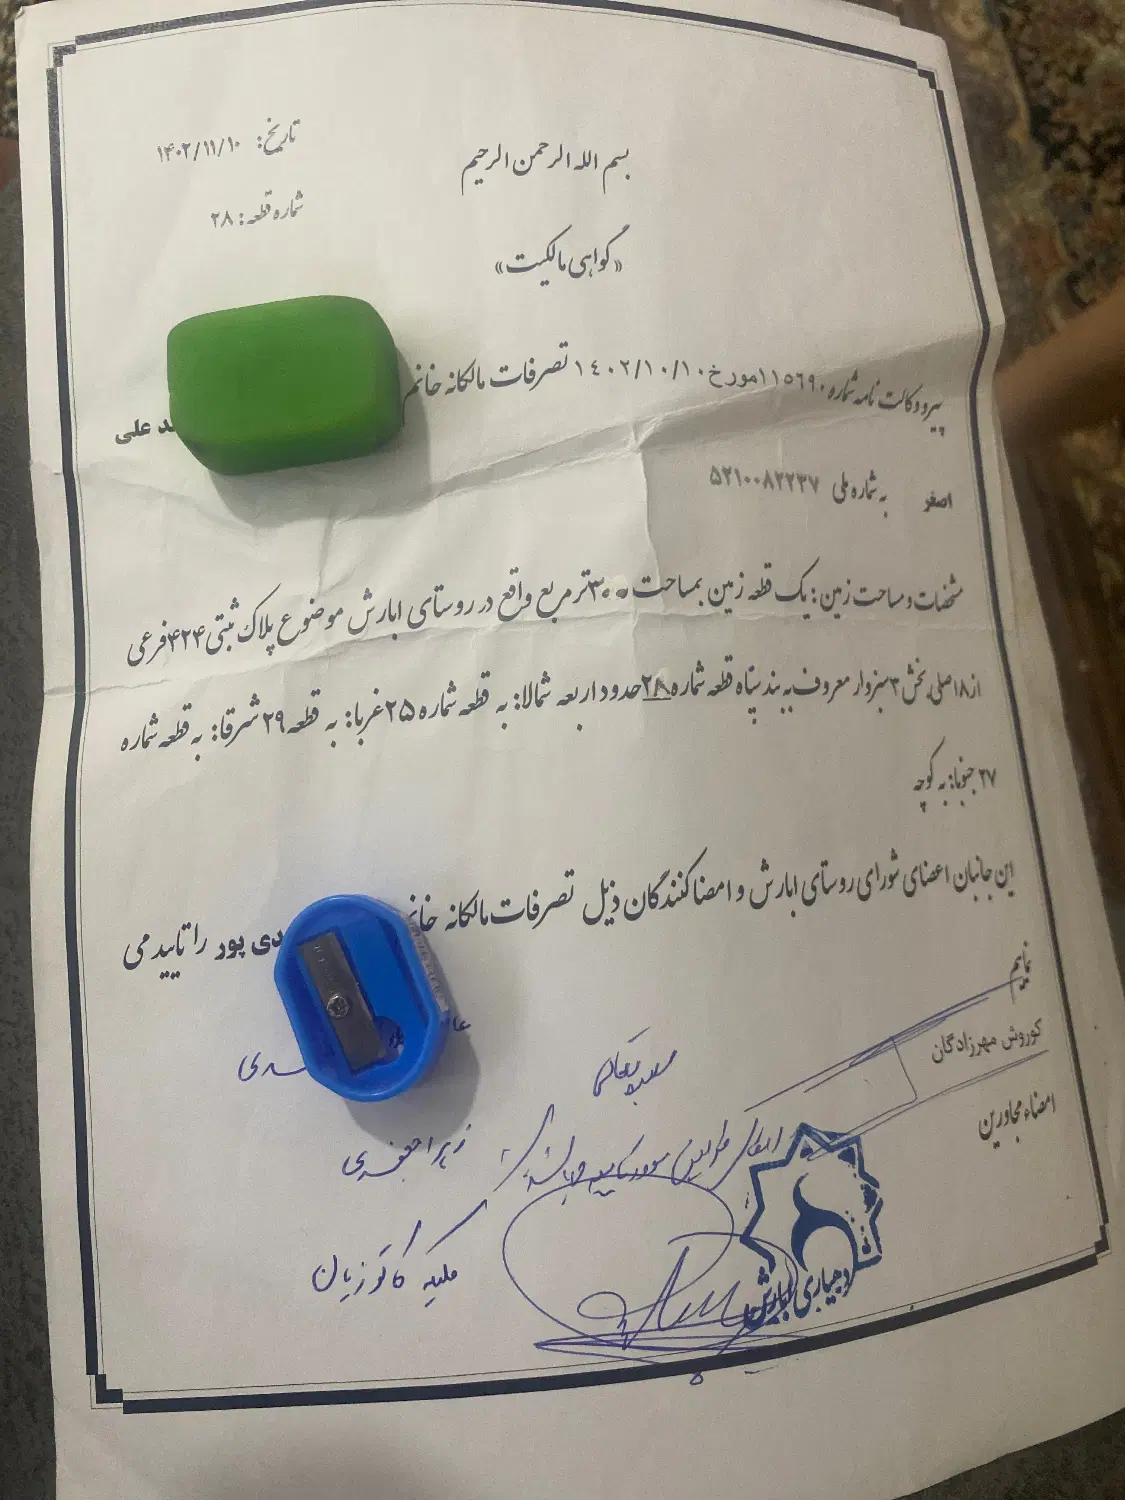 بسم الله الرحمن الرحیم
تاریخ: ۱۴۰۲/۱۱/۱۰
شماره قطعه: ۲۸
«گواهی مالکیت»
پیرو وکالت نامه شماره ۱۱۵۶۹۰ مورخ ۱۴۰۲/۱۰/۱۰ تصرفات مالکانه خانم علی
اصغر به شماره ملی ۵۲۱۰۰۸۲۲۳۷
مشخصات و مساحت زمین: یک قطعه زمین بمساحت ۳۰۰ مترمربع واقع در روستای ابارش موضوع پلاک ثبتی ۴۲۴ فرعی
از ۱۸ اصلی بخش ۳ سبزوار معروف به بند پناه قطعه شماره ۲۸ حدود اربعه شمالا: به قطعه شماره ۲۵ غربا: به قطعه ۲۹ شرقا: به قطعه شماره
۲۷ جنوبا: به کوچه
این جانبان اعضای شورای روستای ابارش و امضا کنندگان ذیل تصرفات مالکانه خانم دی پور را تایید می
نمایم
کوروش مهرزادگان
امضاء مجاورین
زهرا جعفری
ملیکه کاتوزیان
دهیاری ابارش